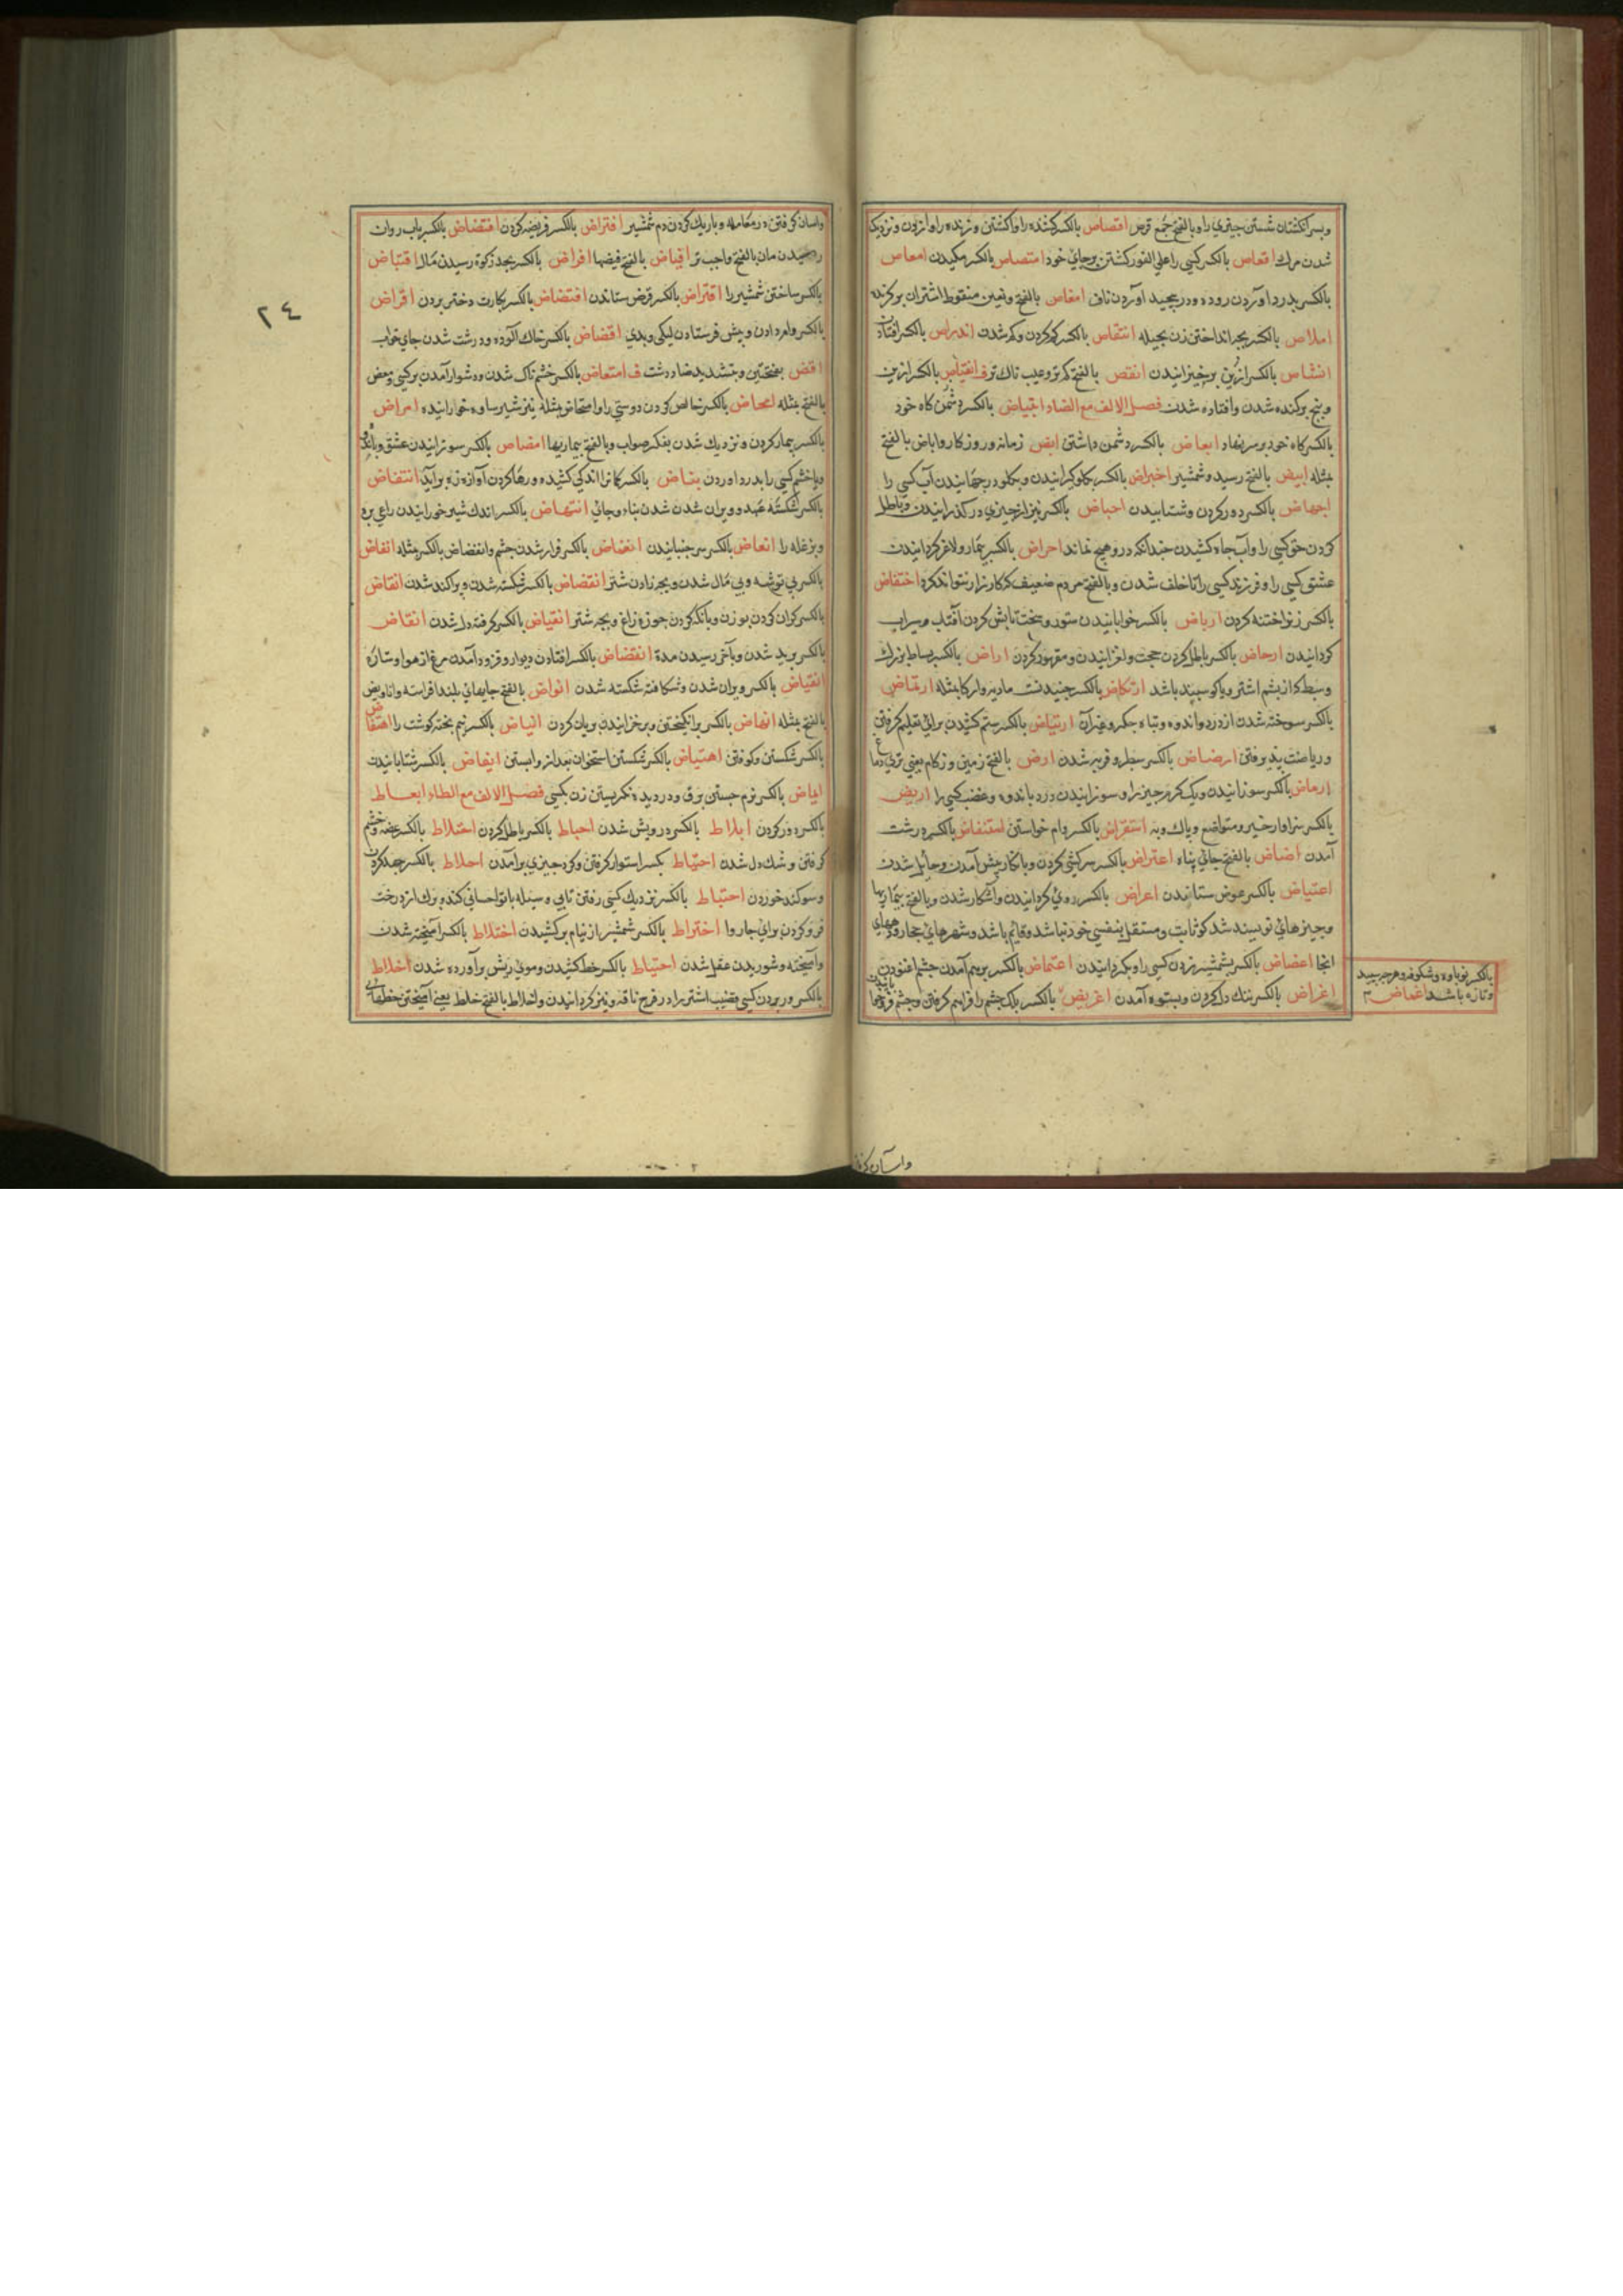 وبسر انگشتان شستن چیزی را وبالفتح جمع قرص اقصاص بالکسر کشنده را واکشتن و زنده را وازدن و نزدیک
شدن مرک اقعاص بالکسر کسی را علی الفور کشتن برجای خود امتصاص بالکسر مکیدن امعاص
بالکسر بدرد اوردن روده و در پیچید اوردن ناف امغاص بالفتح وبغین منقوط اشتران برکزیده
املاص بالکسر بچه انداختن زن بحیله انتقاص بالکسر کم کردن وکم شدن اندراص بالکسر افتادن
انشاص بالکسر برخیزانیدن انقص بالفتح کم تر وعیب ناک تر ف انقیاص بالکسر
وبیخ برکنده شدن وافتاده شدن فصل الالف مع الضاد ابتیاض بالکسر دشمن کاه خود
بالکسر کاه خود بر سر نهاد ابعاض بالکسر دشمن داشتن ابض زمانه و روزکار واباض بالفتح
مثله ابیض بالفتح سپید وشمشیر اجراض بالکسر
اجهاض بالکسر دور کردن وشتابیدن احباض بالکسر تیر از چیزی در کذرانیدن وباطل
کردن حق کسی را وآب چاه کشیدن چندانکه درو هیچ نماند احراض بالکسر بیمار ولاغر کردانیدن
عشق کسی را وفرزند کسی را ناخلف شدن وبالفتح مردم ضعیف که کارزار نتواند کرد اختفاض
بالکسر زن را ختنه کردن ارباض بالکسر خوابانیدن ستور وسخت تابش کردن آفتاب وسیراب
کردانیدن ارحاض بالکسر باطل کردن حجت ولغزانیدن ومقهور کردن اراض بالکسر بساط بزرک
وسطبر که از پشم اشتر ویا کوسپند باشد ارتکاض بالکسر جنبیدن مادیه وار کا مثله ارتماض
بالکسر سوخته شدن از درد واندوه وتباه جکر وغیر آن ارتیاض بالکسر ستم کشیدن برای تعلیم کرفتن
وریاضت پذیرفتن ارضاض بالکسر سطبر وفربه شدن ارض بالفتح زمین وزکام یعنی تری دماغ
ارماض بالکسر سوزانیدن ریک کرم چیز را وسوزانیدن درد باندوه وغضب کسی را اریض
بالکسر سزاوار خیر ومتواضع وپاک وبه استقراض بالکسر وام خواستن استنفاض بالکسر درشت
آمدن اضاض بالفتح جای پناه اعتراض بالکسر سرکشی کردن وبانکار پیش آمدن وحایل شدن
اعتیاض بالکسر عوض ستانیدن اعراض بالکسر روی کردانیدن وآشکار شدن وبالفتح بیماریها
وچیزهای نوپیدا شد کو ثابت ومستقل بنفس خود نباشد وقایم باشد وشهرهای حجاز
انجا اعضاض بالکسر بشمشیر زدن کسی را وبکزدانیدن اعتماض بالکسر بر هم آمدن چشم اغنودن
اغراض بالکسر تنک دل کردن وبستوه آمدن اغریض بالکسر پلک چشم را فراهم کرفتن وچشم
بالکسر نوباوه وشکوفه وهر چه سپید
وتازه باشد اغماض ۳
واسان کر
۲٤
واسان کرفتن در معامله وباریک کردن دم شمشیر افتراض بالکسر فریضه کردن افتضاض بالکسر باب روان
رسیدن مان بالفتح واجب تر افیاض بالفتح فیضها افراض بالکسر بحد زکوة رسیدن مال اقتباض
بالکسر ساختن شمشیر را اقتراض بالکسر قرض ستاندن اقتضاض بالکسر بکارت دختر بردن اقراض
بالکسر وام دادن وپیش فرستادن نیکی وبدی اقضاض بالکسر خاک آلوده ودرشت شدن جای خواب
اقض بفتحتین وبتشدید ضاد درشت ف امتعاض بالکسر خشم ناک شدن ودشوار آمدن بر کسی ومعض
بالفتح مثله امحاض بالکسر خالص کردن دوستی را وامتحاض مثله نیز شیر ساده خورانیده امراض
بالکسر بیمار کردن ونزدیک شدن بفکر صواب وبالفتح بیماریها امضاض بالکسر سوزانیدن عشق
ویا خشم کسی را بدرد اوردن بنباض بالکسر کمان را اندکی کشیده ورها کردن تا آواز زه برآید انتقاض
بالکسر شکسته عهد و ویران شدن بناء وجای انتهاض بالکسر اندک شیر خورانیدن راعی بره
وبزغاله را انعاض بالکسر سر جنبانیدن انغضاض بالکسر فراز شدن چشم وانفضاض بالکسر مثله انفاض
بالکسر بی توشه وبی مال شدن وبچه زادن شتر انفضاض بالکسر شکسته شدن وپراکنده شدن انقاض
بالکسر کران کردن بوزن وبانک کردن جوزه زاغ وبچه شتر انقیاض بالکسر کرفته دل شدن انقاض
بالکسر برید شدن وبآخر رسیدن مدة انقضاض بالکسر افتادن دیوار وفرود آمدن مرغ از هوا وستاره
انقیاض بالکسر ویران شدن وشکافته شکسته شدن انواض بالفتح جایهای بلند
بالفتح مثله انهاض بالکسر برانکیختن وبرخزانیدن بریان کردن انیاض بالکسر نیم پخته کوشت را اهتضاض
بالکسر شکستن وکوفتن اهتیاض بالکسر شکستن استخوان بعد از وابستن ایفاض بالکسر شتابانیدن
ایماض بالکسر نرم جستن برق ودردیده نکریستن زن بکسی فصل الالف مع الطاء ابعاط
بالکسر دور کردن ابلاط بالکسر درویش شدن احباط بالکسر باطل کردن احتلاط بالکسر غضه وخشم
کرفتن وشک دل شدن احتیاط بکسر استوار کرفتن وکرد چیزی برآمدن احلاط بالکسر جهد کردن
وسوکند خوردن اختباط بالکسر نزدیک کسی رفتن وبرک از درخت
فرو کردن برای چاروا اختراط بالکسر شمشیر از نیام برکشیدن اختلاط بالکسر آمیخته شدن
وآمیخته وشوریدن عقل شدن اختیاط بالکسر خط کشیدن وموی ریش برآورده شدن اخلاط
بالکسر در بردن کسی قضیب اشتر را در فرج ناقه ونیز کردانیدن واخلاط بالفتح خلط یعنی آمیختن